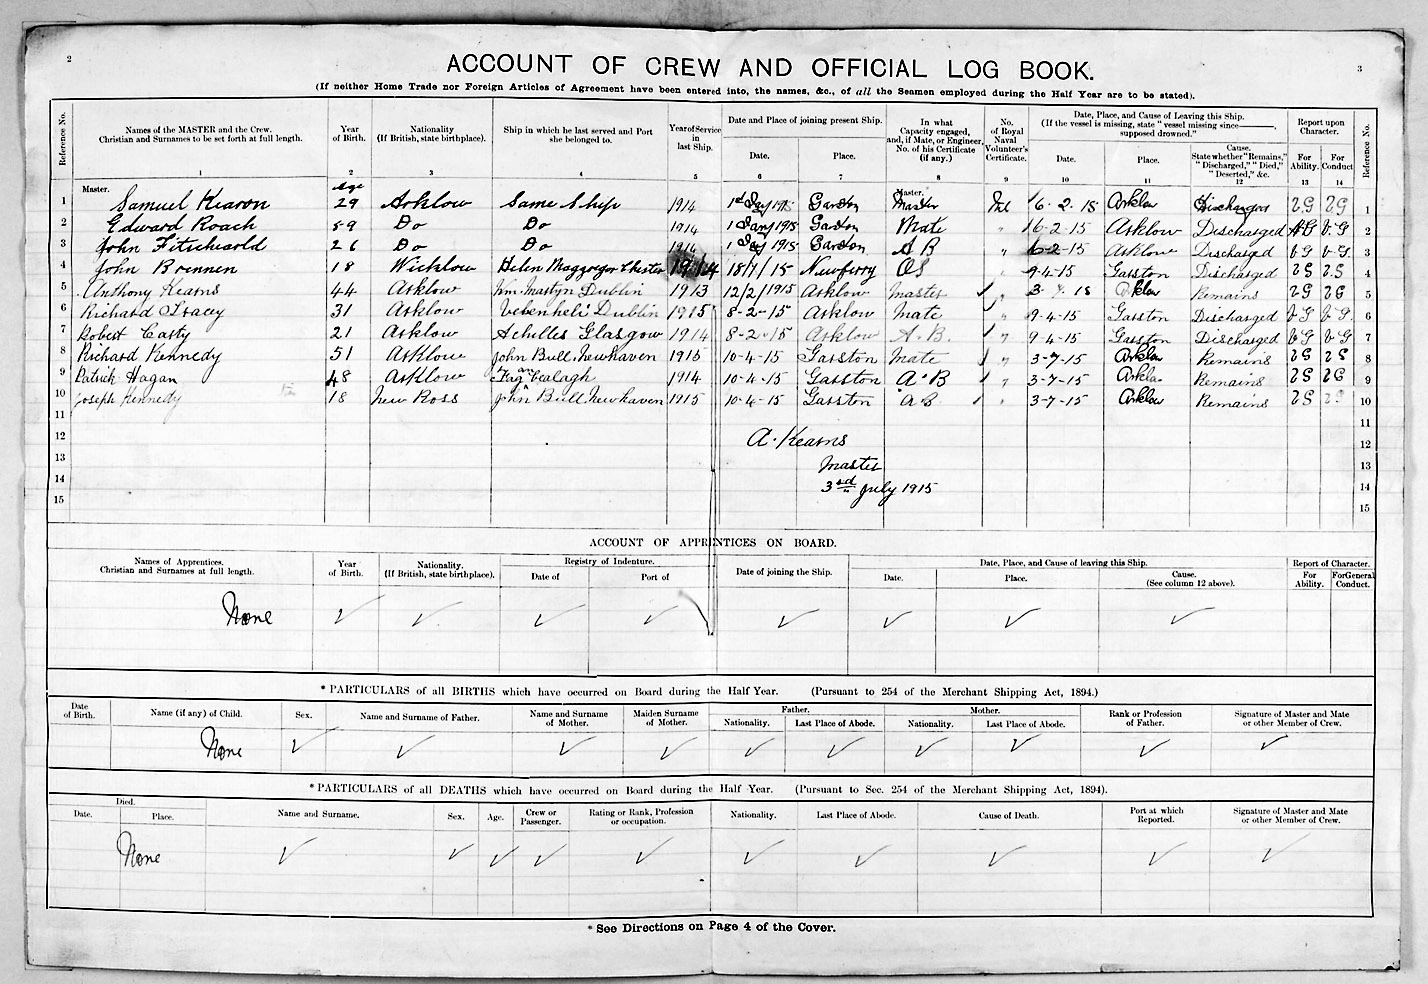 2
3
ACCOUNT OF CREW AND OFFICIAL LOG BOOK.
(If neither Home Trade nor Foreign Articles of Agreement have been entered into, the names, &c., of all the Seamen employed during the Half Year are to be stated).
Reference No. | Names of the MASTER and the Crew. Christian and Surnames to be set forth at full length. | Year of Birth. | Nationality (If British, state birthplace). | Ship in which he last served and Port she belonged to. | Year of Service in last Ship. | Date and Place of joining present Ship. Date. Place. | In what Capacity engaged, and, if Mate, or Engineer, No. of his Certificate (if any.) | No. of Royal Naval Volunteer's Certificate. | Date, Place, and Cause of Leaving this Ship. (If the vessel is missing, state "vessel missing since———, supposed drowned." Date. Place. Cause. State whether "Remains," "Discharged," "Died," "Deserted," &c. | Report upon Character. For Ability. For Conduct | Reference No.
1 2 3 4 5 6 7 8 9 10 11 12 13 14
Master. Age Master.
1 Samuel Kearon 29 Arklow Same Ship 1914 1st Jany 1915 Garston Master Nil 16-2-15 Arklow Discharged VG VG 1
2 Edward Roach 59 Do Do 1914 1 Jany 1915 Garston Mate " 16-2-15 Arklow Discharged VG VG 2
3 John Fitzchearld 26 Do Do 1914 1 Jany 1915 Garston A B " 16-2-15 Arklow Discharged VG VG 3
4 John Brennen 18 Wicklow Helen Maggregor Chester 1914 18/1/15 Newferry OS " 9-4-15 Garston Discharged VG VG 4
5 Anthony Kearns 44 Arklow Wm. Martyn Dublin 1913 12/2/1915 Arklow Master " 3-7-15 Arklow Remains VG VG 5
6 Richard Tracey 31 Arklow Dublin 1915 8-2-15 Arklow Mate " 9-4-15 Garston Discharged VG VG 6
7 Robert Carty 21 Arklow Achilles Glasgow 1914 8-2-15 Arklow A.B. " 9-4-15 Garston Discharged VG VG 7
8 Richard Kennedy 51 Arklow John Bull, Newhaven 1915 10-4-15 Garston Mate " 3-7-15 Arklow Remains VG VG 8
9 Patrick Hagan 48 Arklow 1914 10-4-15 Garston A.B " 3-7-15 Arklow Remains VG VG 9
10 Joseph Kennedy 18 New Ross John Bull Newhaven 1915 10-4-15 Garston A B " 3-7-15 Arklow Remains VG VG 10
11 11
12 A. Kearns 12
13 Master 13
14 3rd July 1915 14
15 15
ACCOUNT OF APPRENTICES ON BOARD.
Names of Apprentices. Christian and Surnames at full length. | Year of Birth. | Nationality. (If British, state birthplace). | Registry of Indenture. Date of Port of | Date of joining the Ship. | Date, Place, and Cause of leaving this Ship. Date. Place. Cause. (See column 12 above). | Report of Character. For Ability. For General Conduct.
None
*PARTICULARS of all BIRTHS which have occurred on Board during the Half Year. (Pursuant to 254 of the Merchant Shipping Act, 1894.)
Date of Birth. | Name (if any) of Child. | Sex. | Name and Surname of Father. | Name and Surname of Mother. | Maiden Surname of Mother. | Father. Nationality. Last Place of Abode. | Mother. Nationality. Last Place of Abode. | Rank or Profession of Father. | Signature of Master and Mate or other Member of Crew.
None
*PARTICULARS of all DEATHS which have occurred on Board during the Half Year. (Pursuant to Sec. 254 of the Merchant Shipping Act, 1894).
Died. Date. Place. | Name and Surname. | Sex. | Age. | Crew or Passenger. | Rating or Rank, Profession or occupation. | Nationality. | Last Place of Abode. | Cause of Death. | Port at which Reported. | Signature of Master and Mate or other Member of Crew.
None
*See Directions on Page 4 of the Cover.